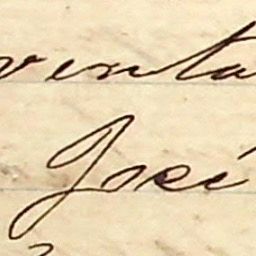 venta
José